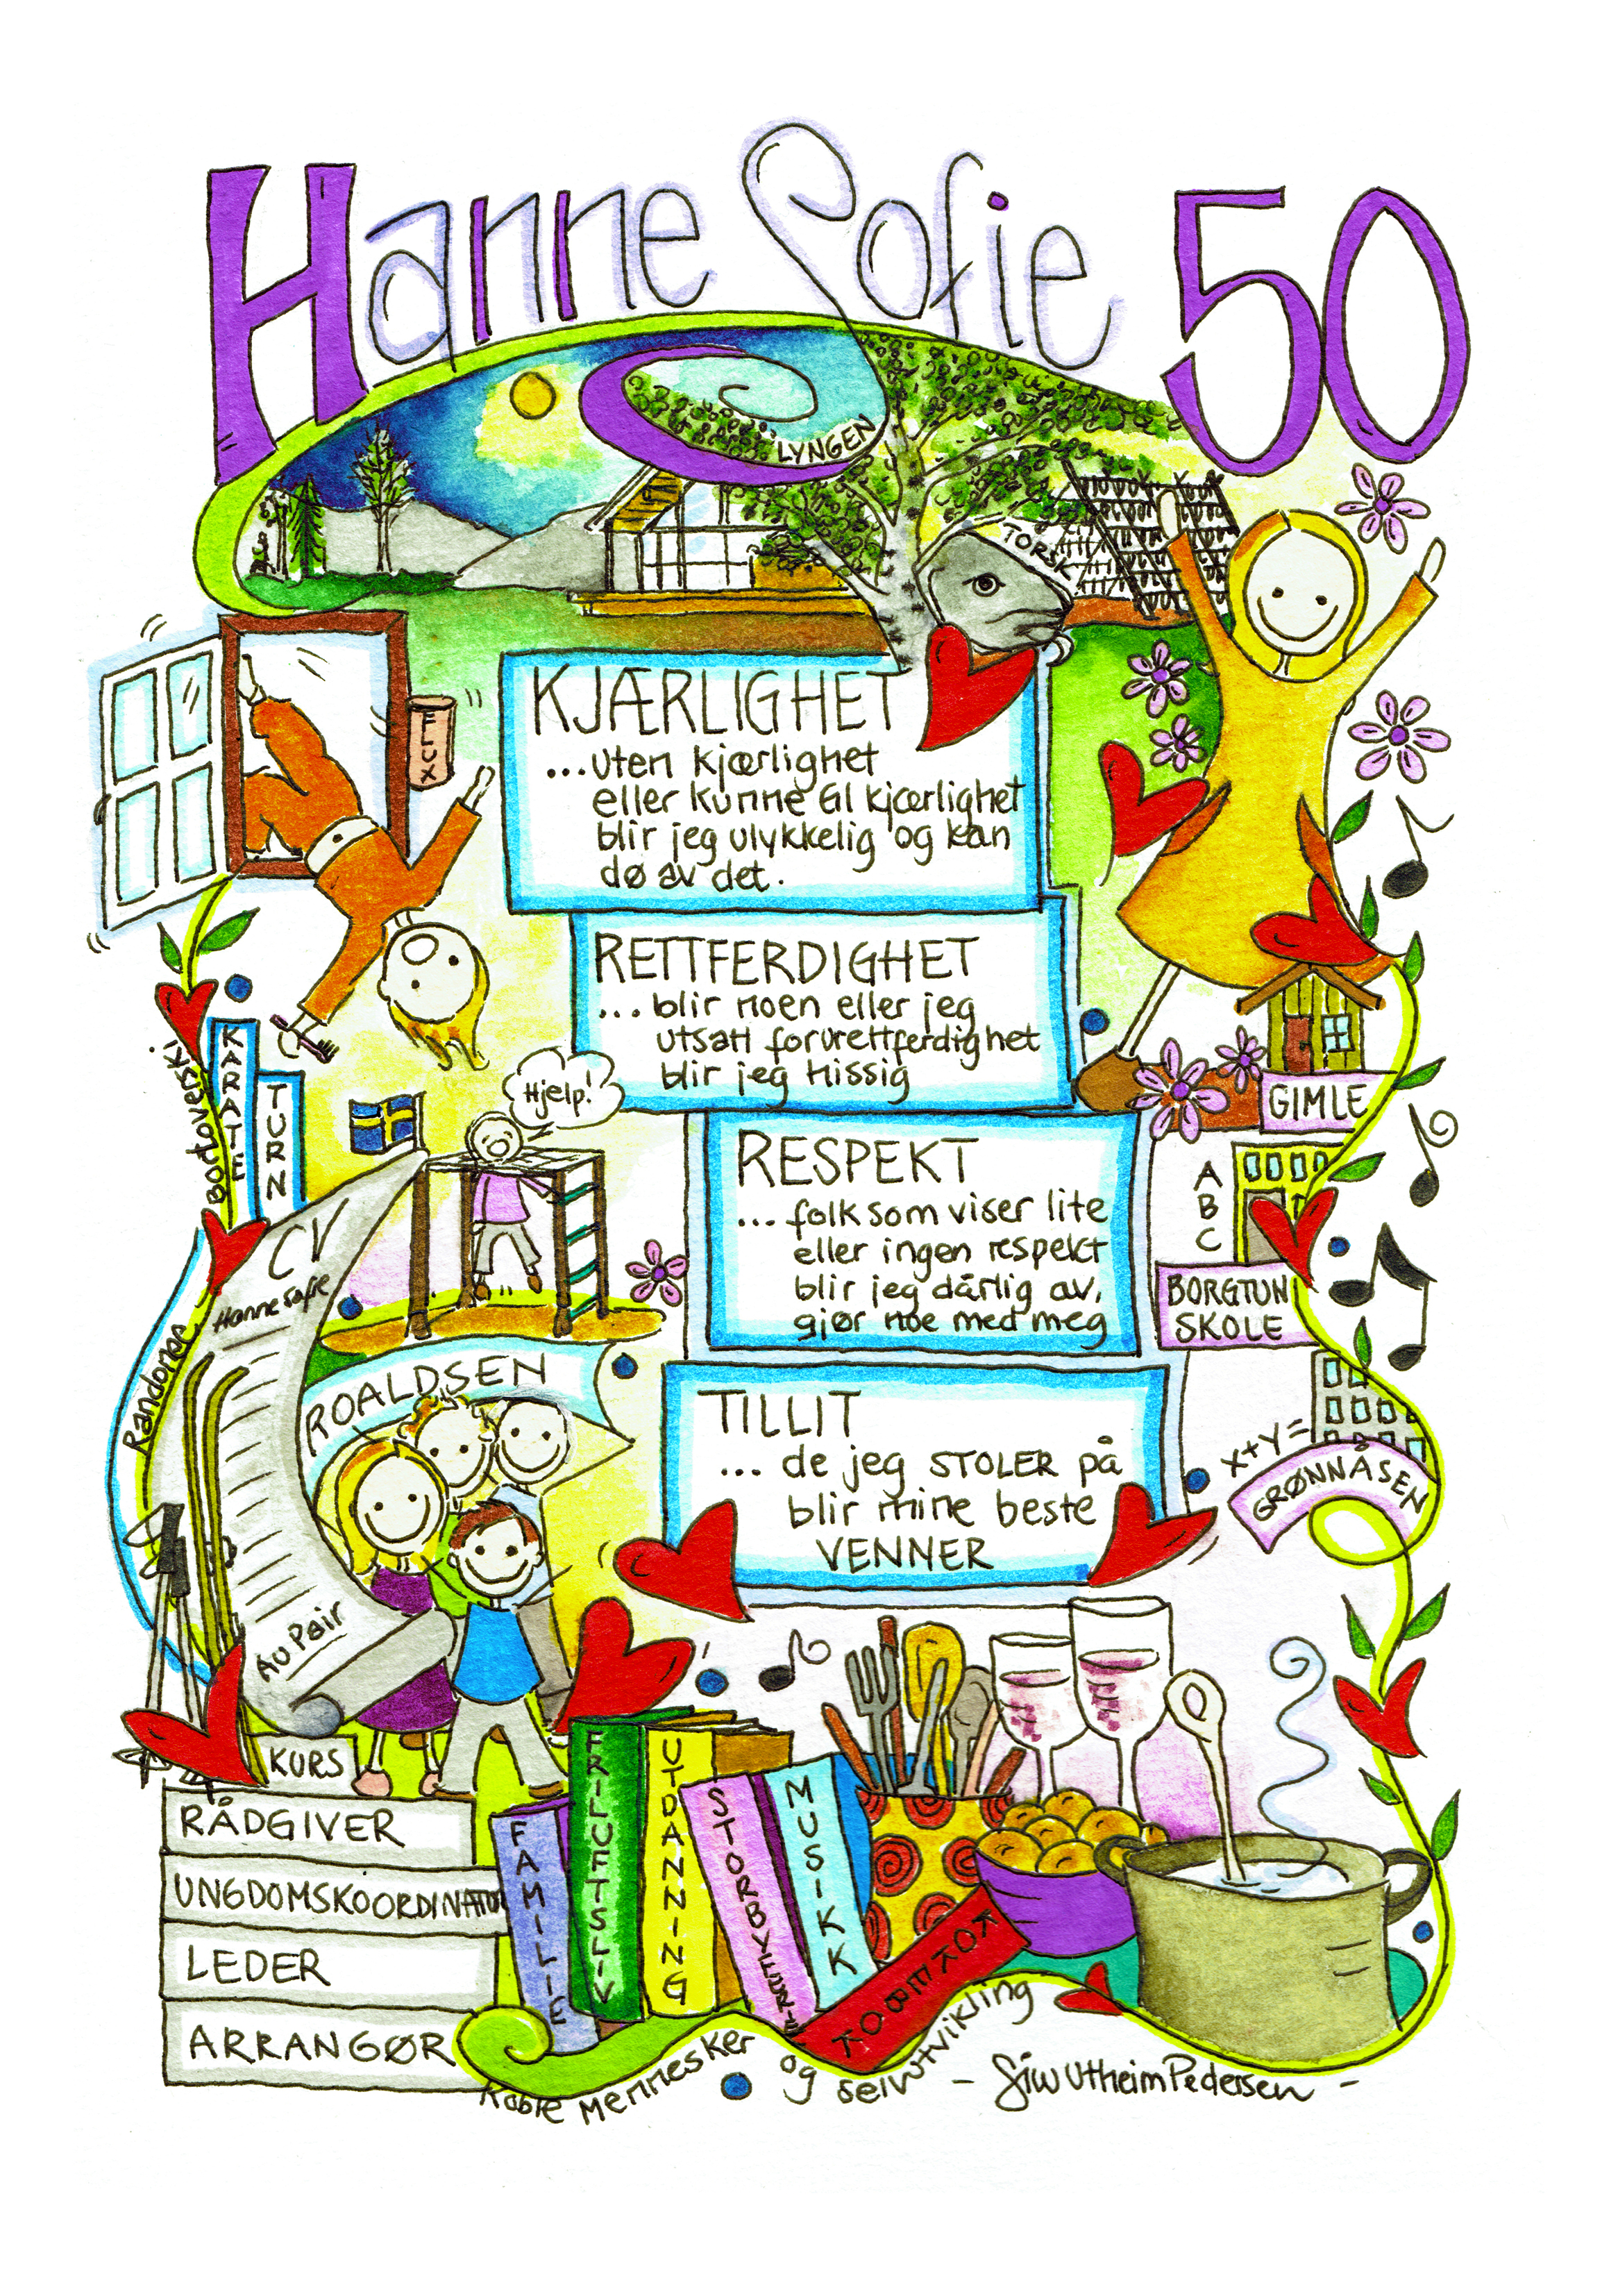 Hanne Sofie 50
LYNGEN
TORSK
FLUX
KJÆRLIGHET
...uten kjærlighet
eller kunne gi kjærlighet
blir jeg ulykkelig og kan
dø av det.
RETTFERDIGHET
... blir noen eller jeg
utsatt for urettferdighet
blir jeg hissig
KARATE
TURN
Bortoverski
Hjelp!
GIMLE
RESPEKT
... folk som viser lite
eller ingen respekt
blir jeg dårlig av,
gjør noe med meg
A
B
C
BORGTUN
SKOLE
CV
Hanne Sofie
Randonee
ROALDSEN
TILLIT
... de jeg STOLER på
blir mine beste
VENNER
X+Y=
GRØNNÅSEN
Au Pair
KURS
RÅDGIVER
UNGDOMSKOORDINATOR
LEDER
ARRANGØR
FAMILIE
FRILUFTSLIV
UTDANNING
STORBYFERIE
MUSIKK
KOKEBOK
Koble Mennesker og selvutvikling
- Siw Utheim Pedersen -